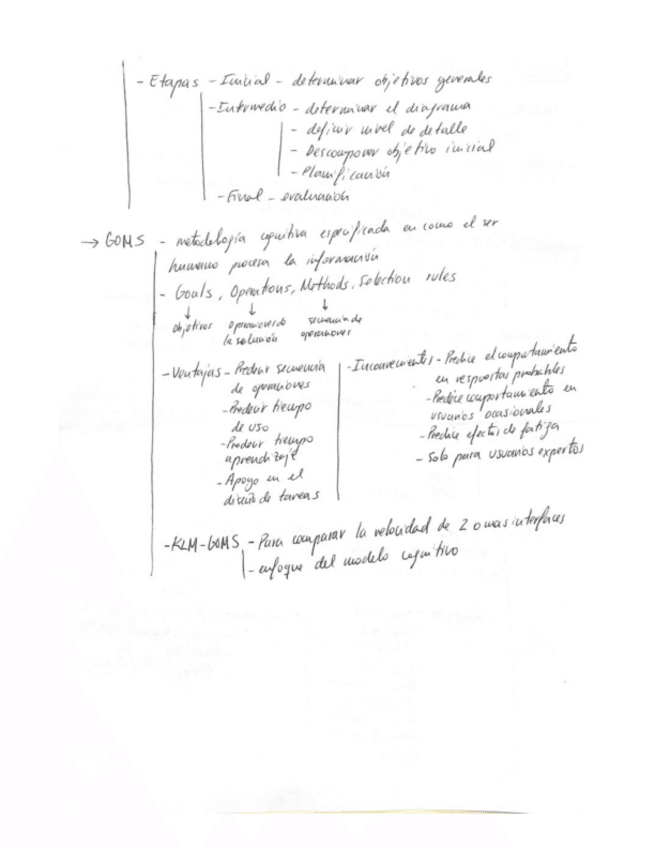 - Etapas - Inicial - determinar objetivos generales
- Intermedio - determinar el diagrama
- definir nivel de detalle
- Descomponer objetivo inicial
- Planificación
- Final - evaluación
→ GOMS - metodología cognitiva especificada en como el ser
humano procesa la información
- Goals, Operations, Methods, Selection rules
↓ ↓ ↓
objetivos operaciones de secuencia de
la solución operaciones
- Ventajas - Predecir secuencia
de operaciones
- Predecir tiempo
de uso
- Predecir tiempo
aprendizaje
- Apoyo en el
diseño de tareas
- Inconvenientes - Predice el comportamiento
en respuestas probables
- Predice comportamiento en
usuarios ocasionales
- Predice efectos de fatiga
- Solo para usuarios expertos
- KLM-GOMS - Para comparar la velocidad de 2 o mas interfaces
- enfoque del modelo cognitivo